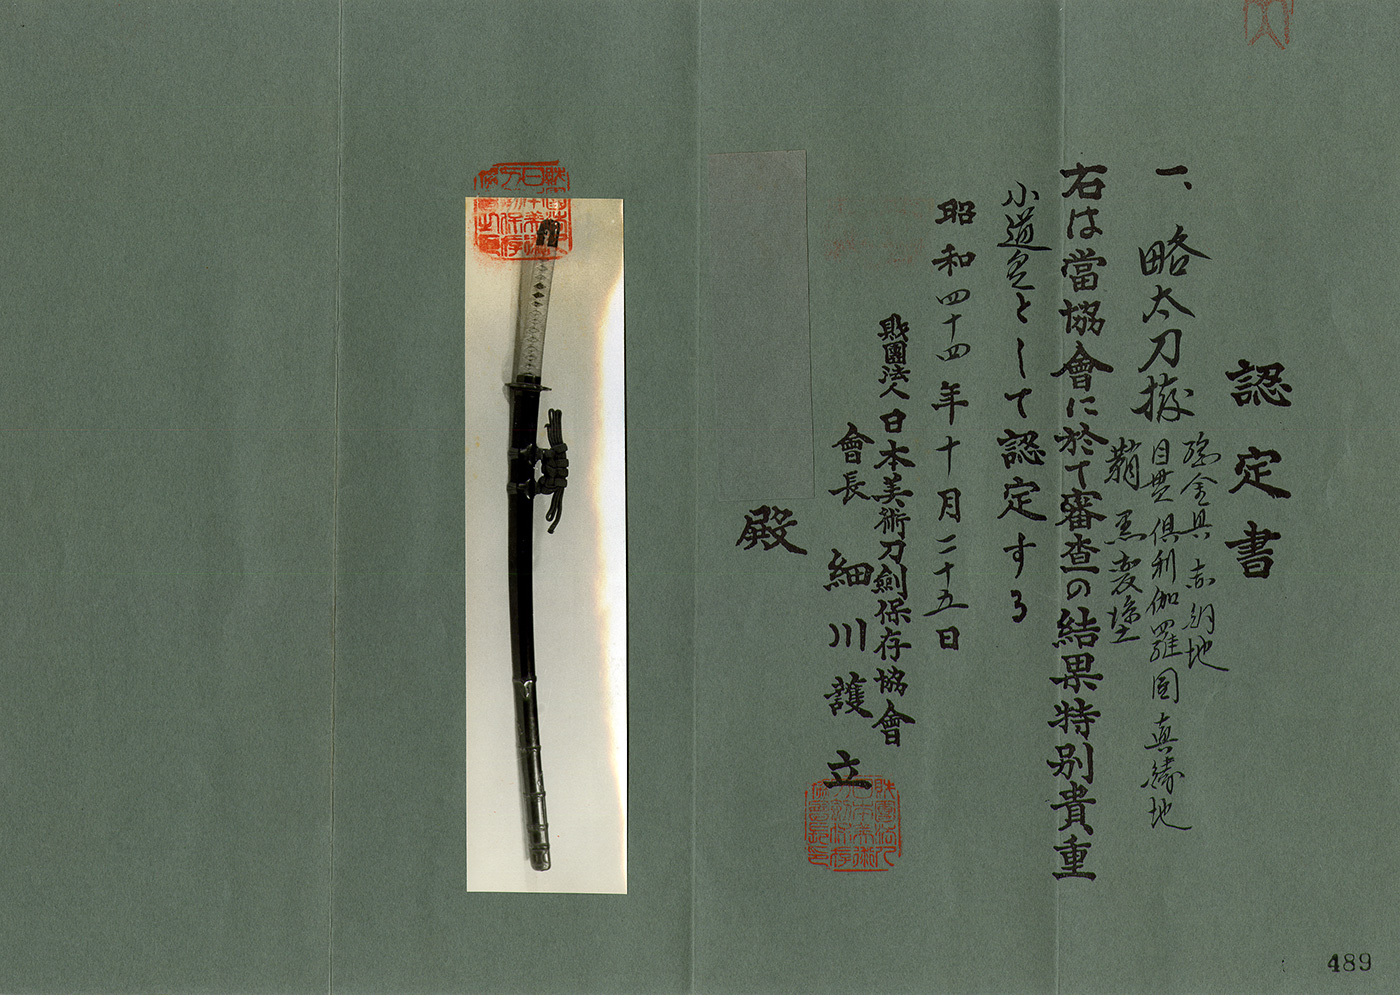 認定書
一、略太刀拵
総金具 赤銅地
目貫 倶利伽羅図 真鍮地
鞘 黒変塗
右は當協會に於て審査の結果特別貴重
小道具として認定する
昭和四十四年十月二十五日
財團法人日本美術刀劍保存協會
會長 細川護立
殿
489